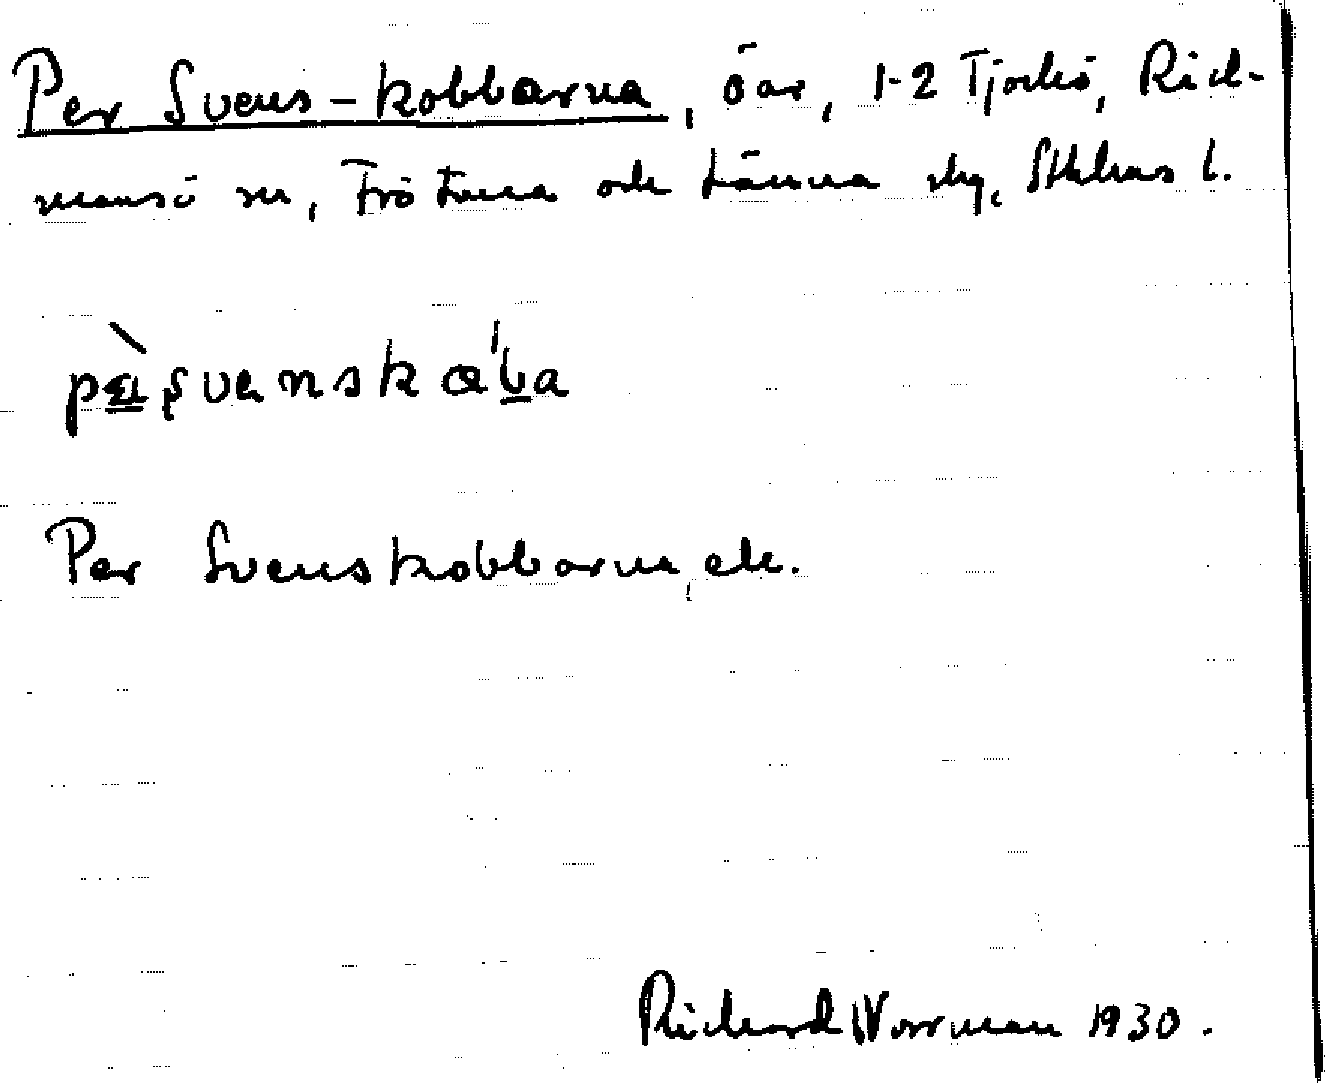 Per Svens-kobbarna, öar, 1-2 Tjockö, Rid-
mansö sn, Frötuna och Länna skg, Sthlms l.
Per Svenskobbarna, ek.
Richard Norrman 1930.